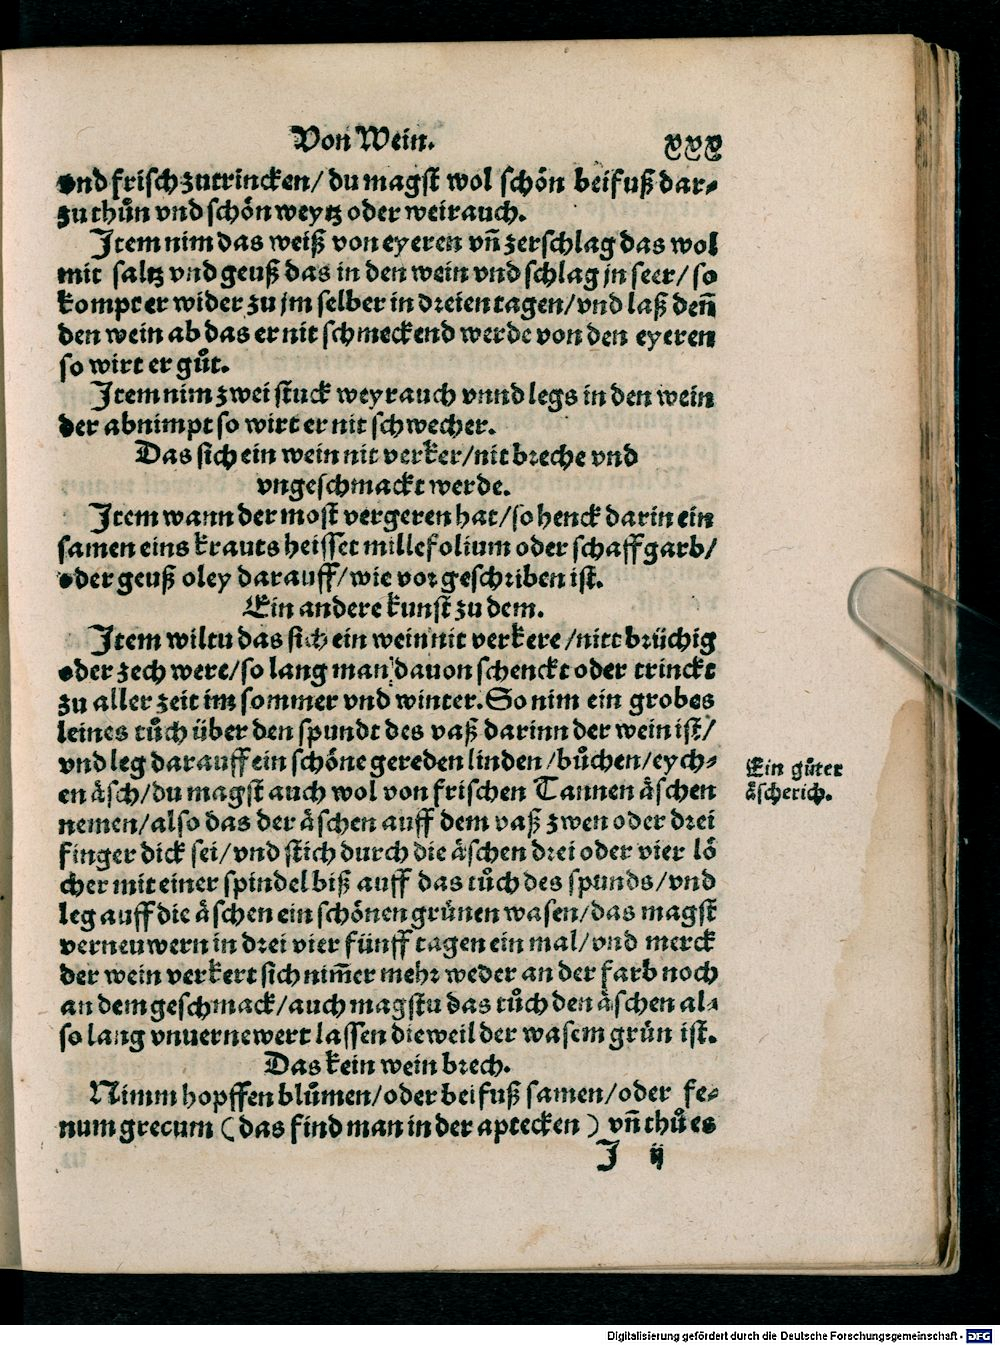 Von Wein. xxx
vnd frisch zutrincken/ du magst wol schön beifuß dar⸗
zu thůn vnd schön weytz oder weirauch.
Item nim das weiß von eyeren vñ zerschlag das wol
mit saltz vnd geuß das in den wein vnd schlag jn seer/ so
kompt er wider zu jm selber in dreien tagen/ vnd laß deñ
den wein ab das er nit schmeckend werde von den eyeren
so wirt er gůt.
Item nim zwei stuck weyrauch vnnd legs in den wein
der abnimpt so wirt er nit schwecher.
Das sich ein wein nit verker/ nit breche vnd
vngeschmackt werde.
Item wann der most vergeren hat/ so henck darin ein
samen eins krauts heisset millefolium oder schaffgarb/
oder geuß oley darauff/ wie vor geschriben ist.
Ein andere kunst zu dem.
Item wiltu das sich ein wein nit verkere/ nitt brüchig
oder zech were/ so lang man dauon schenckt oder trinckt
zu aller zeit im sommer vnd winter. So nim ein grobes
leines tůch über den spundt des vaß darinn der wein ist/
vnd leg darauff ein schöne gereden linden/ bůchen/ eych⸗
en äsch/ du magst auch wol von frischen Tannen äschen
nemen/ also das der äschen auff dem vaß zwen oder drei
finger dick sei/ vnd stich durch die äschen drei oder vier lö
cher mit einer spindel biß auff das tůch des spunds/ vnd
leg auff die äschen ein schönen grünen wasen/ das magst
verneuwern in drei vier fünff tagen ein mal/ vnd merck
der wein verkert sich nim̃er mehr weder an der farb noch
an dem geschmack/ auch magstu das tůch den äschen al⸗
so lang vnuernewert lassen dieweil der wasem grün ist.
Das kein wein brech.
Nimm hopffen blůmen/ oder beifuß samen/ oder fe⸗
num grecum (das find man in der aptecken) vñ thů es
J ij
Ein gůter
äscherich.
Digitalisierung gefördert durch die Deutsche Forschungsgemeinschaft - DFG